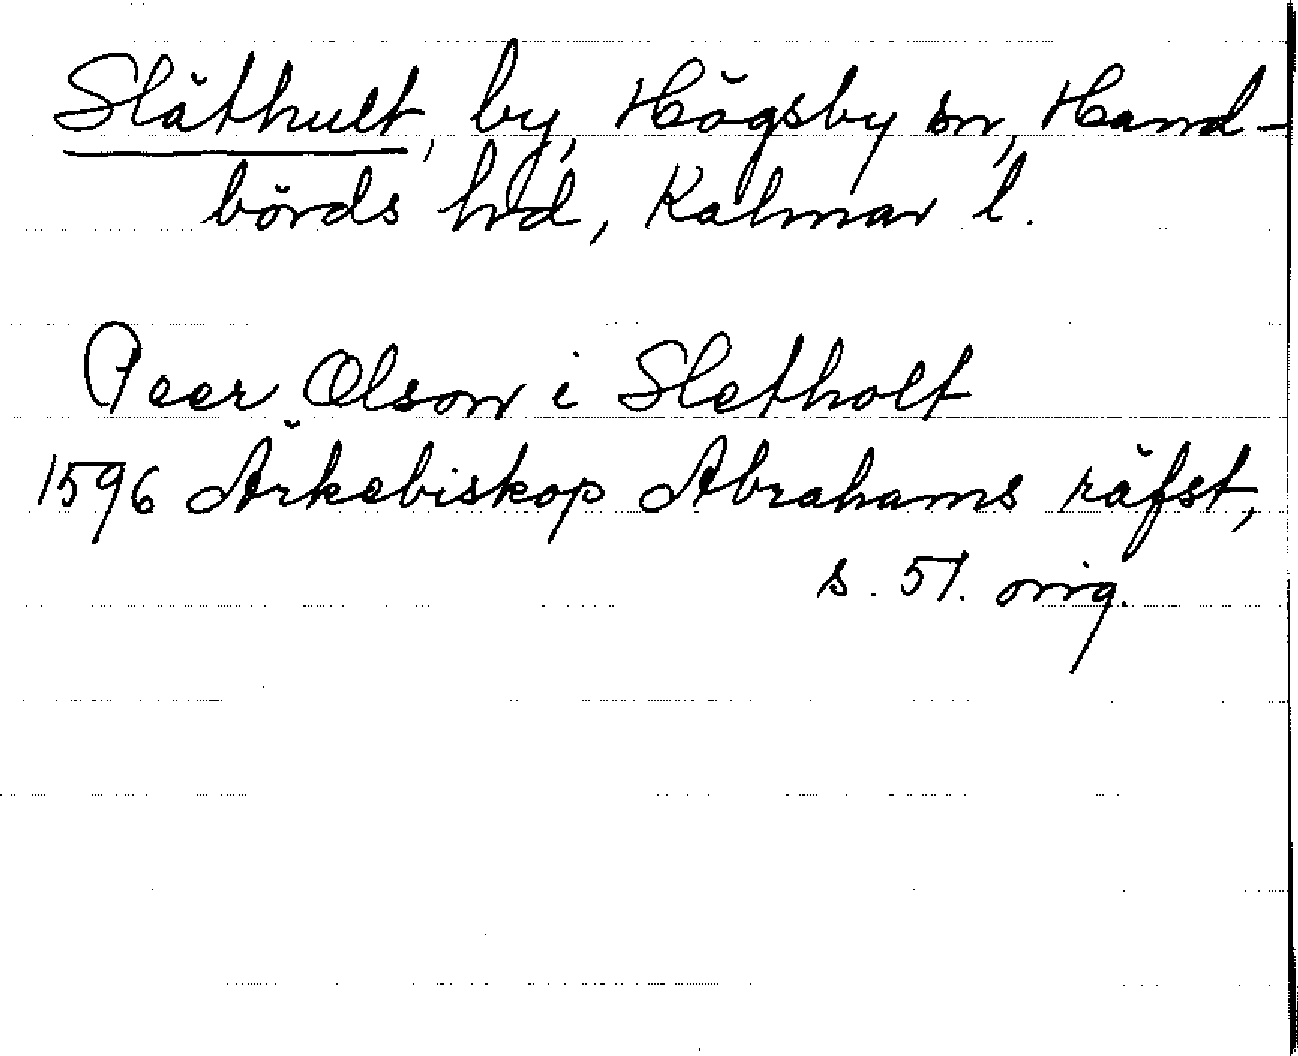 Släthult, by, Högsby sn, Hand-
börds hrd, Kalmar l.
Peer Olson i Sletholt
1596 Ärkebiskop Abrahams räfst,
s. 51. orig.